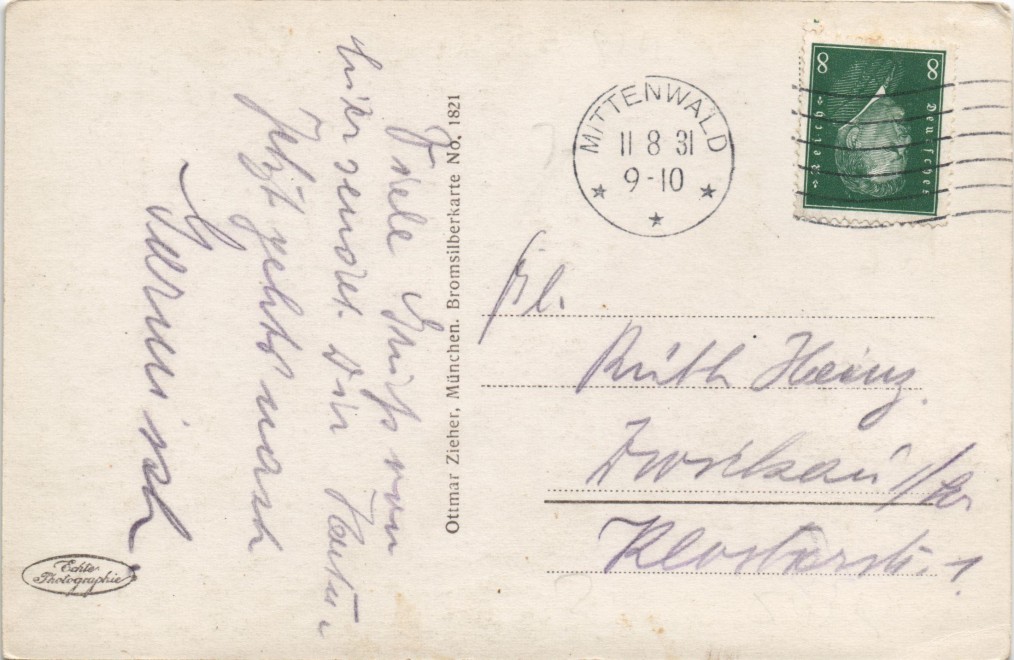 Viele Grüße von
hier sendet Dir
Jetzt geht's nach
Garmisch
Ottmar Zieher, München. Bromsilberkarte No. 1821
Echte
Photographie
MITTENWALD
11 8 31
9-10
8 8
Deutsches
Reich
Frl.
Ruth Heinz.
Zwickau i/Sa
Klosterstr. 1